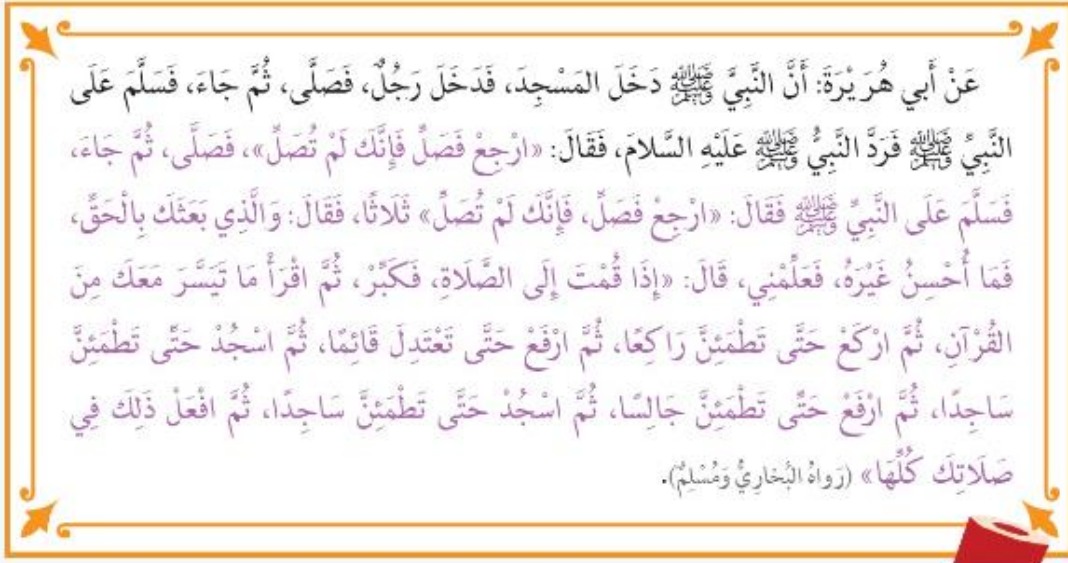 عَنْ أَبي هُرَيْرَةَ: أَنَّ النَّبِيَّ ﷺ دَخَلَ المَسْجِدَ، فَدَخَلَ رَجُلٌ، فَصَلَّى، ثُمَّ جَاءَ، فَسَلَّمَ عَلَى
النَّبِيِّ ﷺ فَرَدَّ النَّبِيُّ ﷺ عَلَيْهِ السَّلامَ، فَقَالَ: «ارْجِعْ فَصَلِّ فَإِنَّكَ لَمْ تُصَلِّ»، فَصَلَّى، ثُمَّ جَاءَ،
فَسَلَّمَ عَلَى النَّبِيِّ ﷺ فَقَالَ: «ارْجِعْ فَصَلِّ، فَإِنَّكَ لَمْ تُصَلِّ» ثَلَاثًا، فَقَالَ: وَالَّذِي بَعَثَكَ بِالْحَقِّ،
فَمَا أُحْسِنُ غَيْرَهُ، فَعَلِّمْنِي، قَالَ: «إِذَا قُمْتَ إِلَى الصَّلَاةِ، فَكَبِّرْ، ثُمَّ اقْرَأْ مَا تَيَسَّرَ مَعَكَ مِنَ
القُرْآنِ، ثُمَّ ارْكَعْ حَتَّى تَطْمَئِنَّ رَاكِعًا، ثُمَّ ارْفَعْ حَتَّى تَعْتَدِلَ قَائِمًا، ثُمَّ اسْجُدْ حَتَّى تَطْمَئِنَّ
سَاجِدًا، ثُمَّ ارْفَعْ حَتَّى تَطْمَئِنَّ جَالِسًا، ثُمَّ اسْجُدْ حَتَّى تَطْمَئِنَّ سَاجِدًا، ثُمَّ افْعَلْ ذَلِكَ فِي
صَلَاتِكَ كُلِّهَا» (رَواهُ البُخارِيُّ وَمُسْلِمٌ).